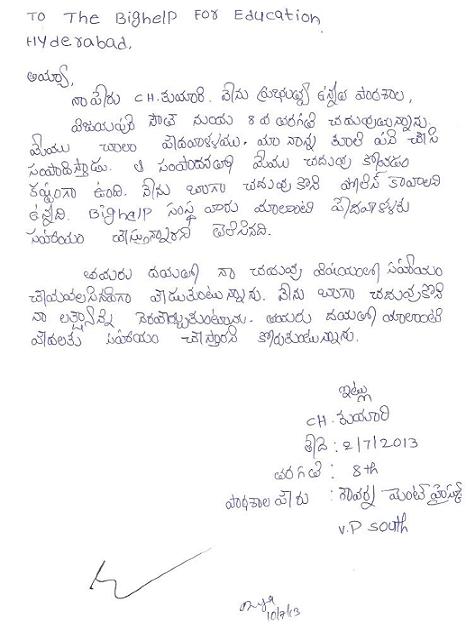 TO The BighelP For Education
Hyderabad.
అయ్యా,
నా పేరు CH.కుమారి. నేను ప్రభుత్వ ఉన్నత పాఠశాల,
విజయపురి సౌత్ నందు 8వ తరగతి చదువుతున్నాను.
మేము చాలా పేదవాళ్ళము. మా నాన్న కూలి పని చేసి
సంపాదిస్తాడు. ఆ సంపాదనతో మేము చదువు కోవడం
కష్టంగా ఉంది. నేను బాగా చదువు కొని పోలీస్ కావాలని
ఉన్నది. BighelP సంస్థ వారు మాలాంటి పేదవాళ్ళకు
సహాయం చేస్తున్నారని తెలిసినది.
తమరు దయతో నా చదువు విషయంలో సహాయం
చేయవలసినదిగా వేడుకుంటున్నాను. నేను బాగా చదువుకొని
నా లక్ష్యాన్ని నెరవేర్చుకుంటాను. తమరు దయతో మాలాంటి
పేదలకు సహాయం చేస్తారని కోరుకుంటున్నాను.
ఇట్లు
CH.కుమారి
తేది : 2/7/2013
తరగతి : 8th
పాఠశాల పేరు : గవర్న మెంట్ హైస్కూల్
V.P SOUTH
10/7/13